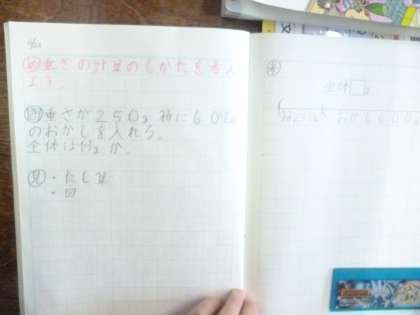 め重さの計算のしかたを考え
よう。
問重さが250g箱に600g
のおかしを入れる。
全体は何gか。
見・たし算
・図
全体□g
おかし600g